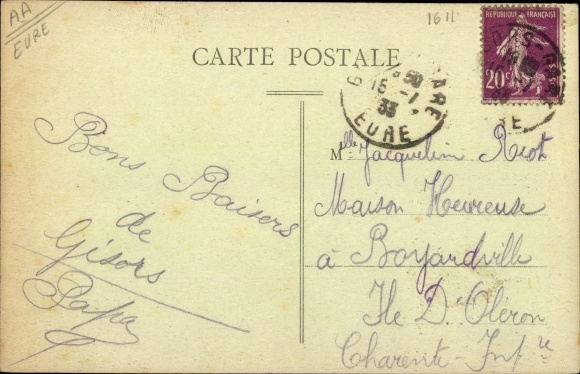 AA
EURE
1611
CARTE POSTALE
REPUBLIQUE FRANÇAISE
20c
GISORS-GARE
50
15-1
33
EURE
Bons Baisers
de
Gisors
Papa
Mlle Jacquelin Riot
Maison Heureuse
à Boyardville
Ile D'Oléron
Charente-Infre